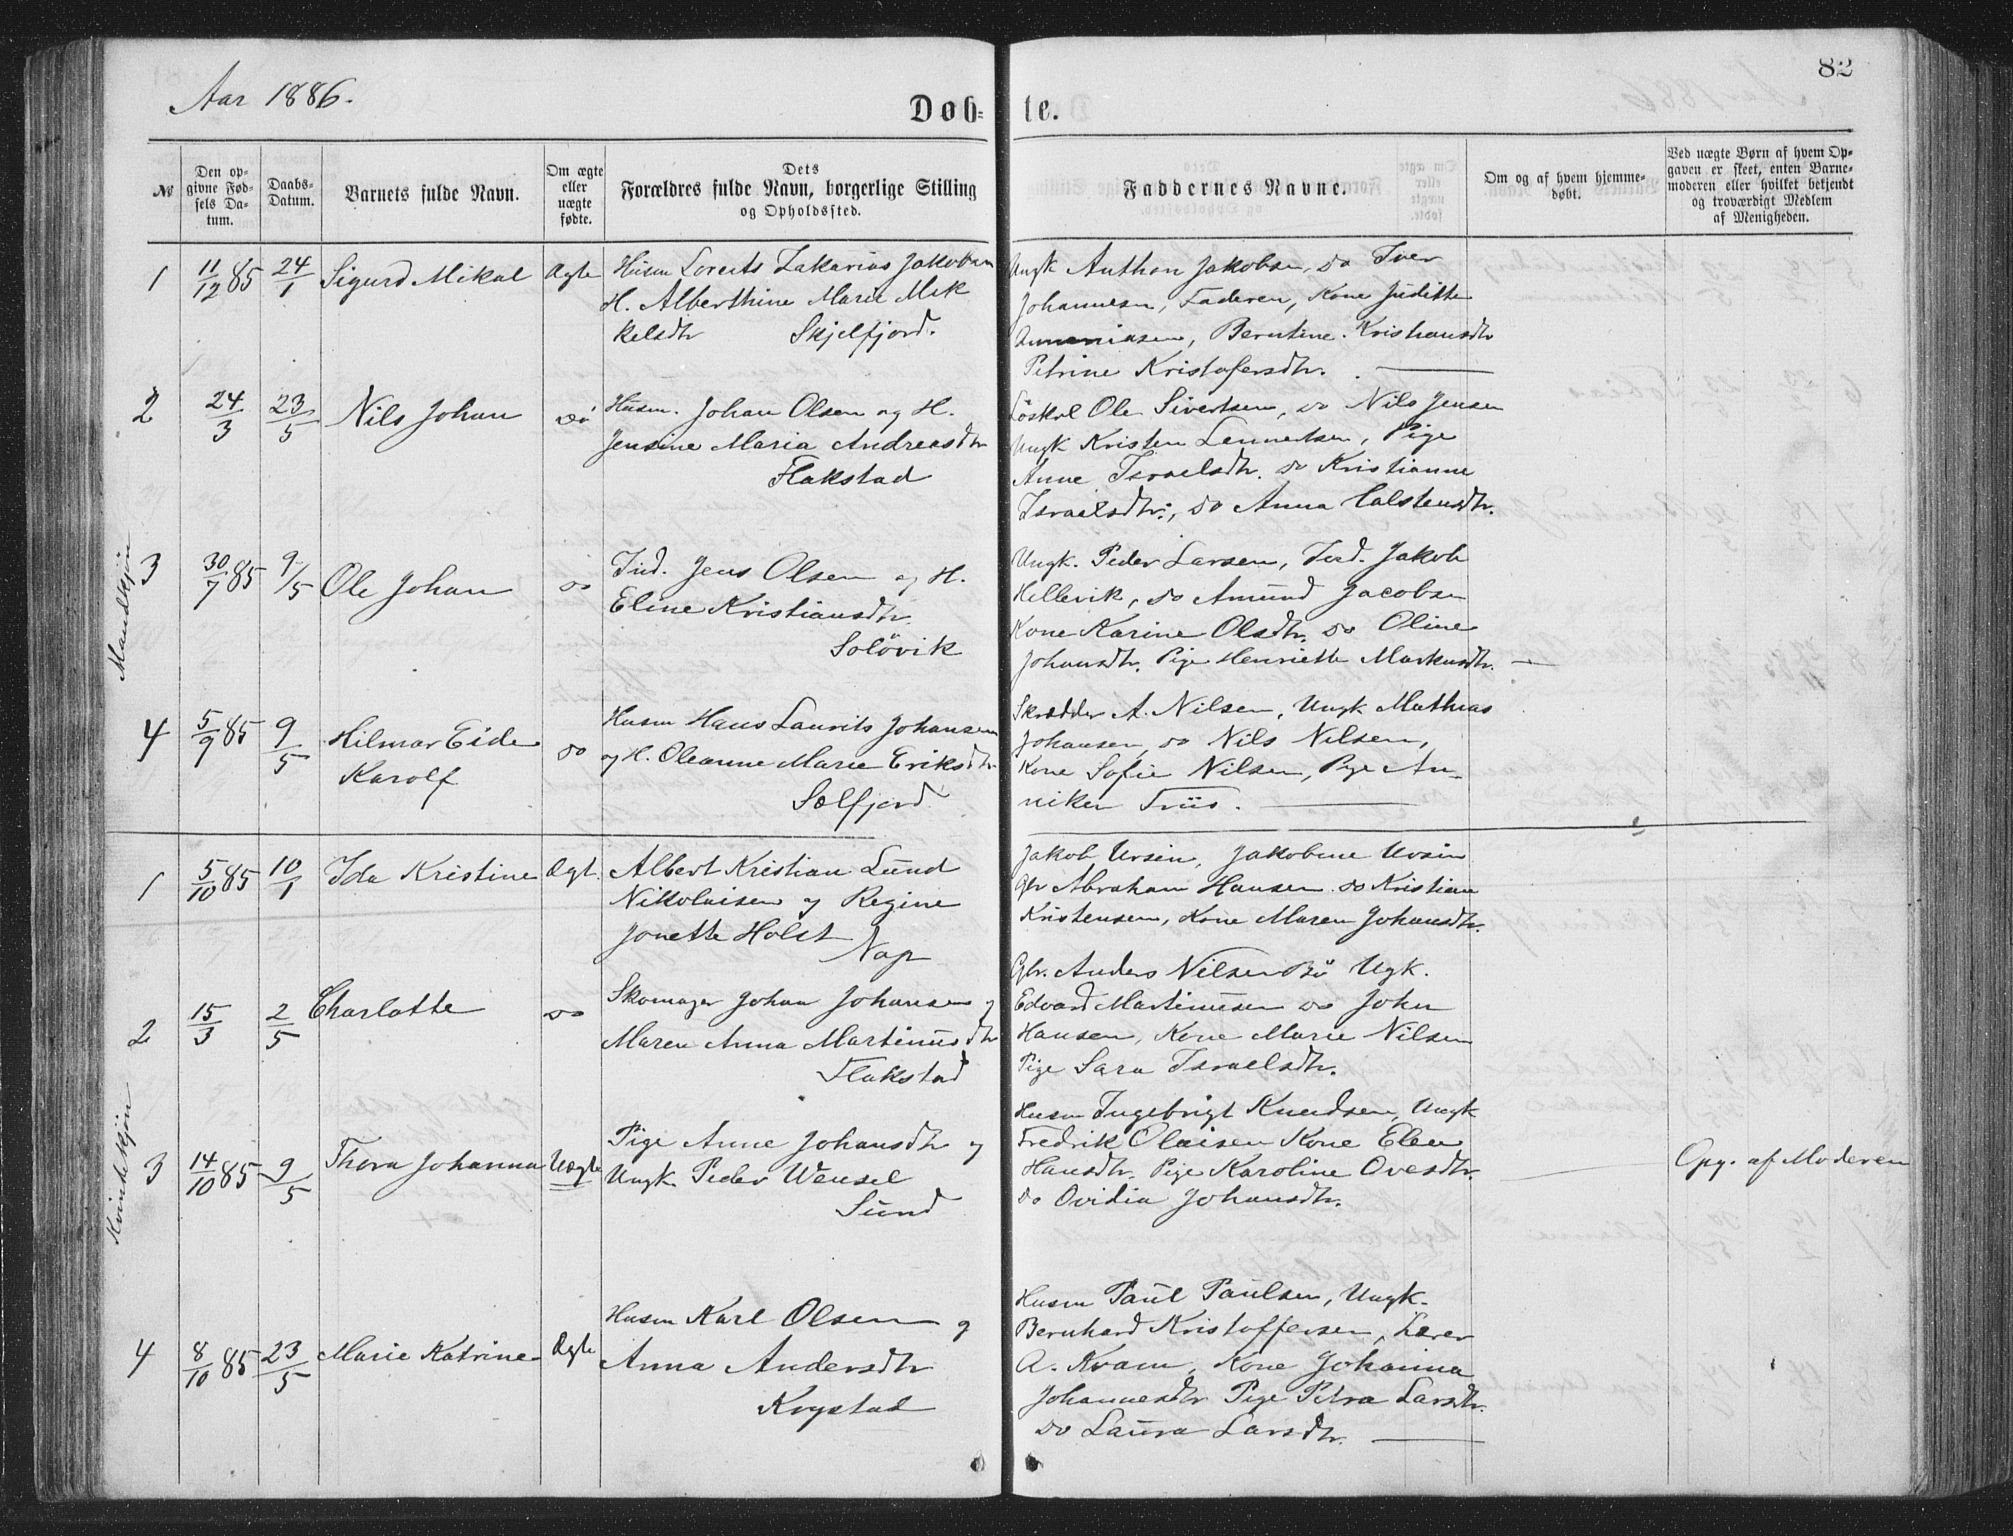 Aar 1886.
82
Døb-
te.
№
Den op-
givne Fød-
sels Da-
tum.
Daabs-
Datum.
Barnets fulde Navn.
Om ægte
eller
uægte
fødte.
Dets
Forældres fulde Navn, borgerlige Stilling
og Opholdssted.
Faddernes Navne.
Om og af hvem hjemme-
døbt.
Ved uægte Børn af hvem Op-
gaven er skeet, enten Barne-
moderen eller hvilket bekjendt
og troværdigt Medlem
af Menigheden.
Mandkjøn
1
11/12 85
24/1
Sigurd Mikal
Ægte
Husm Lorents Zakarias Jakobsen
H. Alberthine Marie Mik
kelsdtr
Skjelfjord.
Ungk Anthon Jakobsen, do Iver
Johannesen, Faderen, Kone Judithe
Ammoniasen, Berntine Kristiansdtr
Petrine Kristofersdtr.
2
24/3
23/5
Nils Johan
do
Husm. Johan Olsen og H.
Jensine Maria Andreasdtr
Flakstad
Löskal Ole Sivertsen, do Nils Jensen
Ungk Kristen Lennertsen, Pige
Anne Israelsdtr. do Kristianne
Israelsdtr., do Anna Calstensdtr.
3
30/7 85
9/5
Ole Johan
do
Ind. Jens Olsen og H.
Eline Kristiansdtr.
Solövik
Ungk. Peder Larsen, Ind. Jakob
Hellevik, do Amund Jacobsen
Kone Karine Olsdtr. do Oline
Johansdtr. Pige Henriette Markusdtr.
4
5/9 85
9/5
Hilmar Eide
Karolf
do
Husm Hans Laurits Johansen
og H. Oleanne Marie Eriksdtr
Solfjord
Skrædder A. Nilsen, Ungk Mathias
Johansen, do Nils Nilsen,
Kone Sofie Nilsen, Pige An-
niken Friis.
Kvindekjøn
1
5/10 85
10/1
Ida Kristine
Ægt.
Albert Kristian Lund
Nikolaisen og Regine
Jonette Holst
Nap
Jakob Ursin, Jakobine Ursin
Gbr Abraham Hansen do Kristian
Kristensen, Kone Maren Johansdtr.
2
15/3
2/5
Charlotte
do
Skomager Johan Johansen og
Maren Anna Martinusdtr
Flakstad
Gbr. Anders Nilsen Bö Ugk.
Edvard Martinusen do John
Hansen, Kone Marie Nilsen
Pige Sara Israelsdtr.
3
14/10 85
9/5
Thora Johanna
Uægte
Pige Anne Johansdtr og
Ungk Peder Wensel
Sund
Husm Ingebrigt Knudsen, Ungk
Fredrik Olaisen Kone Elen
Hansdtr. Pige Karoline Ovesdtr.
do Ovidia Johansdtr.
Opg. af Moderen
4
8/10 85
23/5
Marie Katrine
Ægte
Husm Karl Olsen og
Anna Andersdtr
Krystad
Husm Paul Paulsen, Ungk.
Bernhard Kristoffersen, Lærer
A. Kvam, Kone Johanna
Johannesdtr Pige Petra Larsdtr.
do Laura Larsdtr.